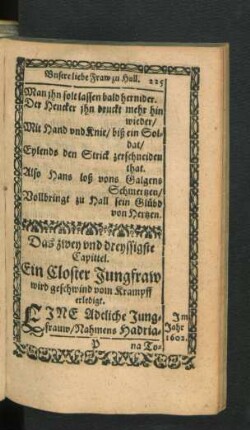 Unsere liebe Fraw zu Hall. 225
Man jhn solt lassen bald hernider.
Der Hencker jhn druckt mehr hin
wieder/
Mit Hand vnd Knie/ biß ein Sol-
dat/
Eylends den Strick zerschneiden
that.
Also Hans loß vons Galgens
Schmertzen/
Vollbringt zu Hall sein Glübd
von Hertzen.
Das zwey vnd dreyssigste
Capittel.
Ein Closter Jungfraw
wird geschwind vom Krampff
erledigt.
EINE Adeliche Jung-
frauw/ Nahmens Hadria-
Im
Jahr
1602.
P na To-